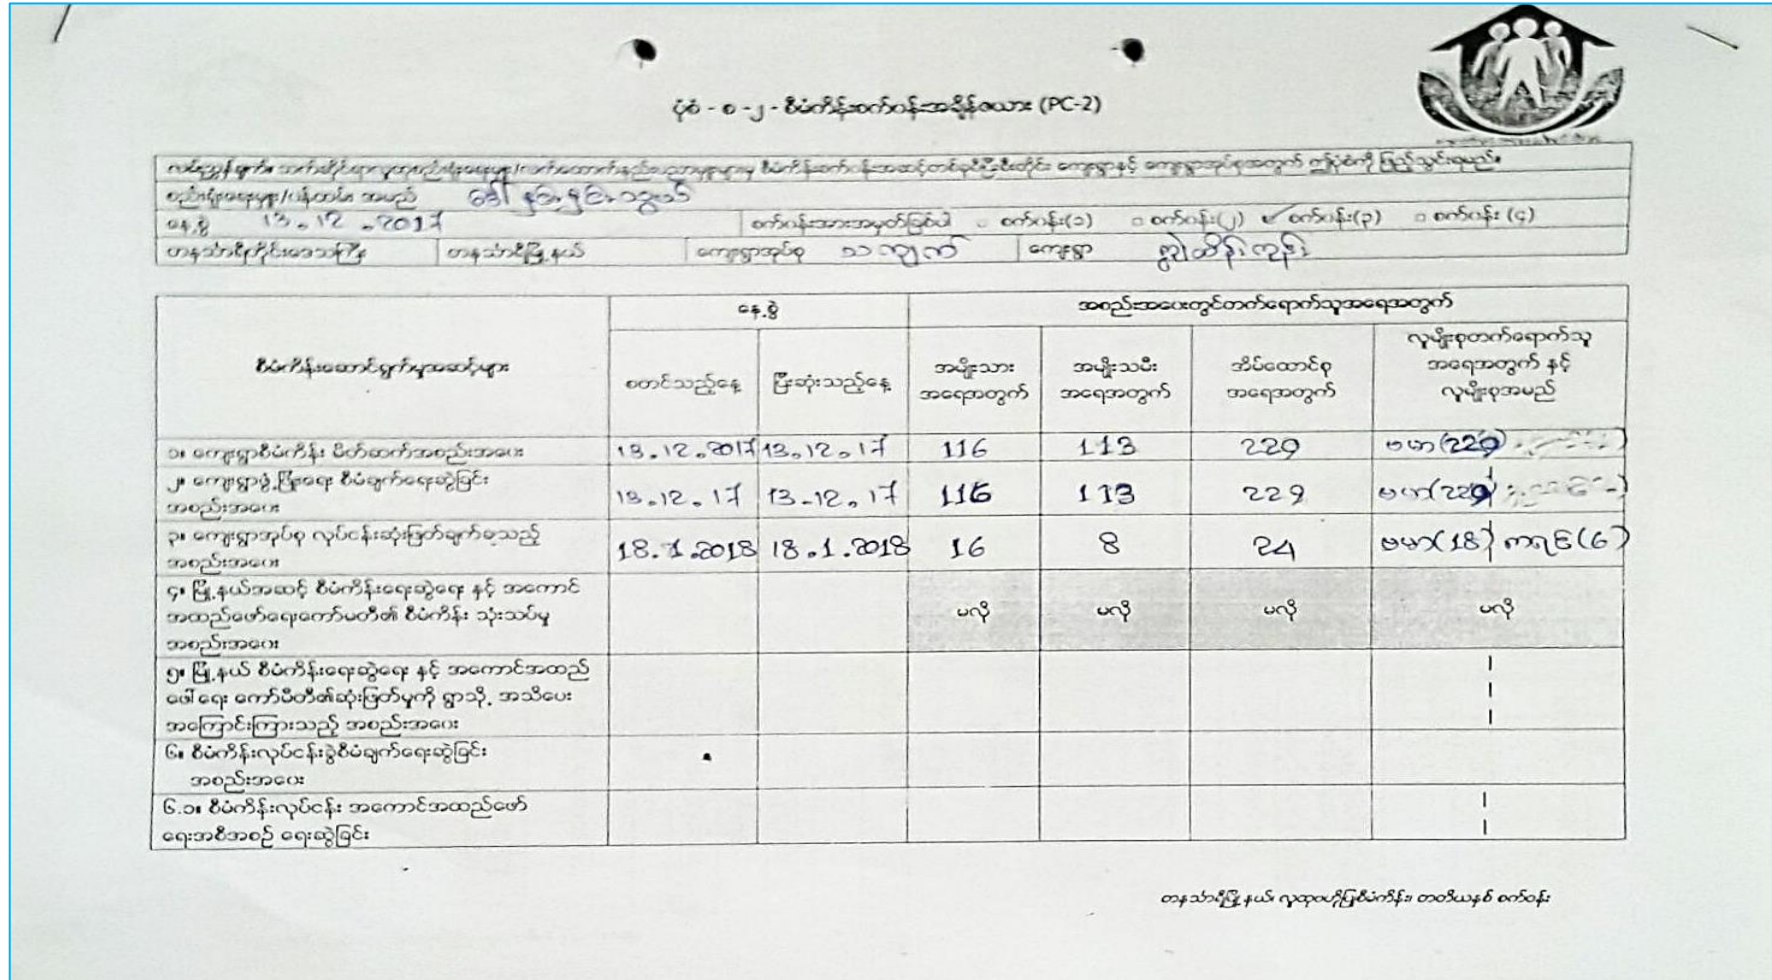 ပုံစံ - စ -၂ - စီမံကိန်းစက်ဝန်းအချိန်ဇယား (PC-2)
လမ်းညွှန်ချက်။ သက်ဆိုင်ရာလူထုစည်းရုံးရေးမှူး/လက်ထောက်နည်းပညာမှူးများမှ စီမံကိန်းစက်ဝန်းအဆင့်တစ်ခုပြီးစီးတိုင်း ကျေးရွာနှင့် ကျေးရွာအုပ်စုအတွက် ဤပုံစံကို ဖြည့်သွင်းရမည်။
စည်းရုံးရေးမှူး/ဝန်ထမ်း အမည် ဒေါ်
နေ့စွဲ 13.12.2017 စက်ဝန်းအားအမှတ်ခြစ်ပါ စက်ဝန်း(၁) စက်ဝန်း(၂) ✓ စက်ဝန်း(၃) စက်ဝန်း (၄)
တနင်္သာရီတိုင်းဒေသကြီး တနင်္သာရီမြို့နယ် ကျေးရွာအုပ်စု သကျက် ကျေးရွာ
နေ့စွဲ အစည်းအဝေးတွင်တက်ရောက်သူအရေအတွက်
စီမံကိန်းဆောင်ရွက်မှုအဆင့်များ စတင်သည့်နေ့ ပြီးဆုံးသည့်နေ့ အမျိုးသား အရေအတွက် အမျိုးသမီး အရေအတွက် အိမ်ထောင်စု အရေအတွက် လူမျိုးစုတက်ရောက်သူ အရေအတွက် နှင့် လူမျိုးစုအမည်
၁။ ကျေးရွာစီမံကိန်း မိတ်ဆက်အစည်းအဝေး 13.12.2017 13.12.17 116 113 229 ဗမာ(229)
၂။ ကျေးရွာဖွံ့ဖြိုးရေး စီမံချက်ရေးဆွဲခြင်း
အစည်းအဝေး 13.12.17 13.12.17 116 113 229 ဗမာ(229)
၃။ ကျေးရွာအုပ်စု လုပ်ငန်းဆုံးဖြတ်ချက်ချသည့်
အစည်းအဝေး 18.1.2018 18.1.2018 16 8 24 ဗမာ(18) ကရင်(6)
၄။ မြို့နယ်အဆင့် စီမံကိန်းရေးဆွဲရေး နှင့် အကောင်
အထည်ဖော်ရေးကော်မတီ၏ စီမံကိန်း သုံးသပ်မှု မလို မလို မလို မလို
အစည်းအဝေး
၅။ မြို့နယ် စီမံကိန်းရေးဆွဲရေး နှင့် အကောင်အထည်
ဖေါ်ရေး ကော်မီတီ၏ဆုံးဖြတ်မှုကို ရွာသို့ အသိပေး
အကြောင်းကြားသည့် အစည်းအဝေး
၆။ စီမံကိန်းလုပ်ငန်းခွဲစီမံချက်ရေးဆွဲခြင်း
အစည်းအဝေး
၆.၁။ စီမံကိန်းလုပ်ငန်း အကောင်အထည်ဖော်
ရေးအစီအစဉ် ရေးဆွဲခြင်း
တနင်္သာရီမြို့နယ်၊ လူထုဗဟိုပြုစီမံကိန်း၊ တတိယနှစ် စက်ဝန်း